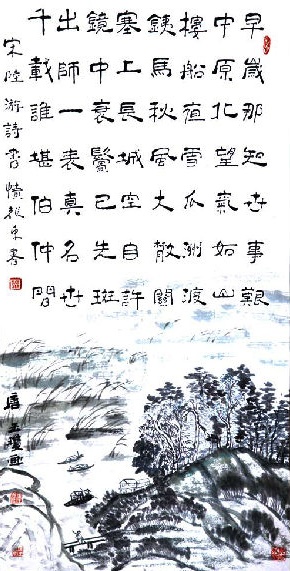 早歲那知世事艱
中原北望氣如山
樓船夜雪瓜洲渡
銕馬秋風大散關
塞上長城空自許
鏡中衰鬢已先斑
出師一表真名世
千載誰堪伯仲間
宋陸游詩書憤 東書
玉 画